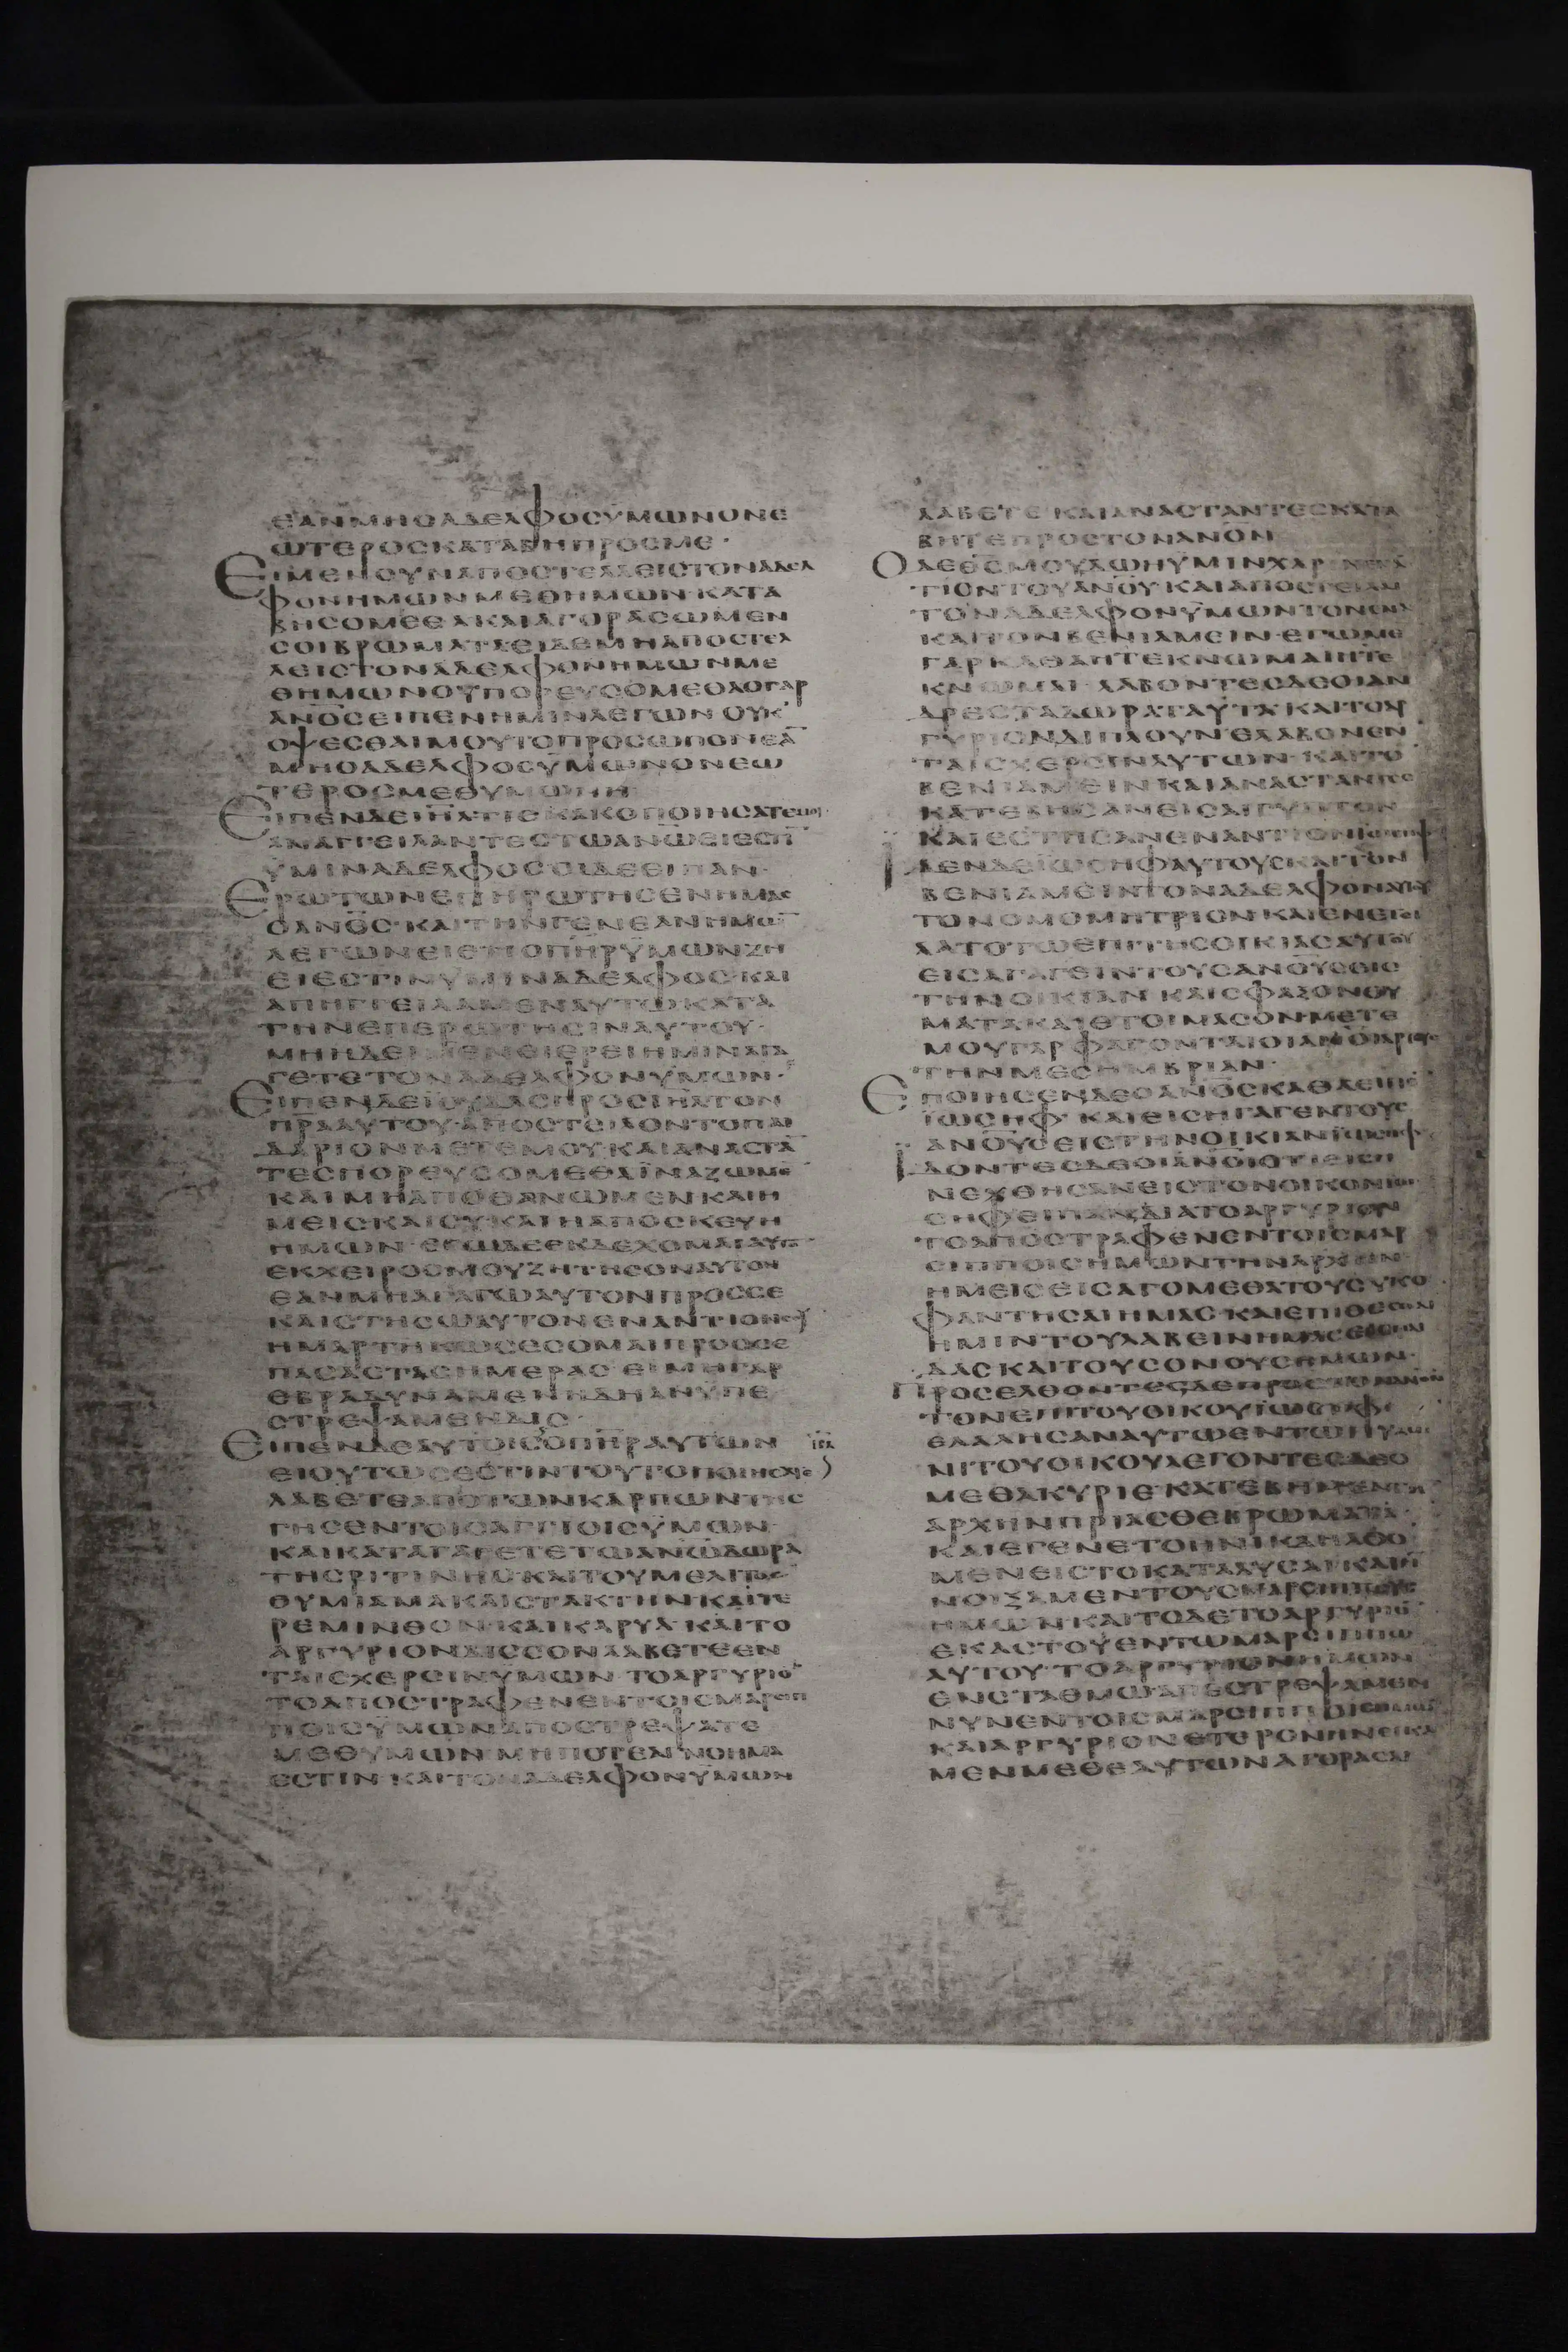 ΕΑΝΜΗΟΑΔΕΛΦΟСΥΜΩΝΟΝΕ
ΩΤΕΡΟСΚΑΤΑΒΗΠΡΟСΜΕ·
ΕΙΜΕΝΟΥΝΑΠΟСΤΕΛΛΕΙСΤΟΝΑΔΕΛ
ΦΟΝΗΜΩΝΜΕΘΗΜΩΝΚΑΤΑ
ΒΗСΟΜΕΘΑΚΑΙΑΓΟΡΑСΩΜΕΝ
СΟΙΒΡΩΜΑΤΑΕΙΔΕΜΗΑΠΟСΤΕΛ
ΛΕΙСΤΟΝΑΔΕΛΦΟΝΗΜΩΝΜΕ
ΘΗΜΩΝΟΥΠΟΡΕΥСΟΜΕΘΑΟΓΑΡ
ΑΝΟ̅СΕΙΠΕΝΗΜΙΝΛΕΓΩΝΟΥΚ
ΟΨΕСΘΑΙΜΟΥΤΟΠΡΟСΩΠΟΝΕΑ̅
ΜΗΟΑΔΕΛΦΟСΥΜΩΝΟΝΕΩ
ΤΕΡΟСΜΕΘΥΜΩΝΗ
ΕΙΠΕΝΔΕΙΗΛΤΙΕΚΑΚΟΠΟΙΗСΑΤΕΜΟΙ
ΑΝΑΓΓΕΙΛΑΝΤΕСΤΩΑΝΩ̅ΕΙΕСΤΙ̅
ΥΜΙΝΑΔΕΛΦΟСΟΙΔΕΕΙΠΑΝ·
ΕΡΩΤΩΝΕΠΗΡΩΤΗСΕΝΗΜΑС
ΟΑΝΟ̅С·ΚΑΙΤΗΝΓΕΝΕΑΝΗΜΩ̅
ΛΕΓΩΝΕΙΕΤΙΟΠΗ̅ΡΫΜΩΝΖΗ
ΕΙΕСΤΙΝΥΜΙΝΑΔΕΛΦΟС·ΚΑΙ
ΑΠΗΓΓΕΙΛΑΜΕΝΑΥΤΩΚΑΤΑ
ΤΗΝΕΠΕΡΩΤΗСΙΝΑΥΤΟΥ·
ΜΗΗΔΕΙΜΕΝΕΙΕΡΕΙΗΜΙΝΑΓΑ
ΓΕΤΕΤΟΝΑΔΕΛΦΟΝΥΜΩΝ·
ΕΙΠΕΝΔΕΪΟΥΔΑСΠΡΟСΙΗΛΤΟΝ
ΠΡ̅ΑΑΥΤΟΥ·ΑΠΟСΤΙΛΟΝΤΟΠΑΙ
ΔΑΡΙΟΝΜΕΤΕΜΟΥΚΑΙΑΝΑСΤΑ̅
ΤΕСΠΟΡΕΥСΟΜΕΘΑΪΝΑΖΩΜΕ
ΚΑΙΜΗΑΠΟΘΑΝΩΜΕΝΚΑΙΗ
ΜΕΙСΚΑΙСΥΚΑΙΗΑΠΟСΚΕΥΗ
ΗΜΩΝ·ΕΓΩΔΕΕΚΔΕΧΟΜΑΙΑΥΤ
ΕΚΧΕΙΡΟСΜΟΥΖΗΤΗСΟΝΑΥΤΟΝ
ΕΑΝΜΗΑΓΑΓΩΑΥΤΟΝΠΡΟССΕ
ΚΑΙСΤΗСΩΑΥΤΟΝΕΝΑΝΤΙΟΝСΟΥ
ΗΜΑΡΤΗΚΩСΕСΟΜΑΙΠΡΟССΕ
ΠΑСΑСΤΑСΗΜΕΡΑС·ΕΙΜΗΓΑΡ
ΕΒΡΑΔΥΝΑΜΕΝΗΔΗΑΝΥΠΕ
СΤΡΕΨΑΜΕΝΔΙС·
ΕΙΠΕΝΔΕΑΥΤΟΙСΟΠΗ̅ΡΑΥΤΩΝ ΙΗΛ
ΕΙΟΥΤΩСΕСΤΙΝΤΟΥΤΟΠΟΙΗСΑΤΕ
ΛΑΒΕΤΕΑΠΟΤΩΝΚΑΡΠΩΝΤΗС
ΓΗСΕΝΤΟΙСΑΓΓΙΟΙСΫΜΩΝ
ΚΑΙΚΑΤΑΓΑΓΕΤΕΤΩΑΝΩ̅ΔΩΡΑ
ΤΗСΡΙΤΙΝΗСΚΑΙΤΟΥΜΕΛΙΤΟС
ΘΥΜΙΑΜΑΚΑΙСΤΑΚΤΗΝΚΑΙΤΕ
ΡΕΜΙΝΘΟΝΚΑΙΚΑΡΥΑ·ΚΑΙΤΟ
ΑΡΓΥΡΙΟΝΔΙССΟΝΛΑΒΕΤΕΕΝ
ΤΑΙСΧΕΡСΙΝΫΜΩΝ·ΤΟΑΡΓΥΡΙΟ̅
ΤΟΑΠΟСΤΡΑΦΕΝΕΝΤΟΙСΜΑΡСΙΠ
ΠΟΙСΫΜΩΝΑΠΟСΤΡΕΨΑΤΕ
ΜΕΘΥΜΩΝ·ΜΗΠΟΤΕΑΓΝΟΗΜΑ
ΕСΤΙΝ·ΚΑΙΤΟΝΑΔΕΛΦΟΝΫΜΩΝ
ΛΑΒΕΤΕΚΑΙΑΝΑСΤΑΝΤΕСΚΑΤΑ
ΒΗΤΕΠΡΟСΤΟΝΑΝΟ̅Ν
ΟΔΕΘ̅СΜΟΥΔΩΗΥΜΙΝΧΑΡΙΝΕΝΑ
ΤΙΟΝΤΟΥΑΝΟ̅Υ·ΚΑΙΑΠΟСΤΕΙΛΑΙ
ΤΟΝΑΔΕΛΦΟΝΫΜΩΝΤΟΝΕΝΑ
ΚΑΙΤΟΝΒΕΝΙΑΜΕΙΝ·ΕΓΩΜΕ̅
ΓΑΡΚΑΘΑΗΤΕΚΝΩΜΑΙΗΤΕ
ΚΝΩΜΑΙ·ΛΑΒΟΝΤΕСΔΕΟΙΑΝ
ΔΡΕСΤΑΔΩΡΑΤΑΥΤΑ·ΚΑΙΤΟΑΡ
ΓΥΡΙΟΝΔΙΠΛΟΥΝΕΛΑΒΟΝΕΝ
ΤΑΙСΧΕΡСΙΝΑΥΤΩΝ·ΚΑΙΤΟ̅
ΒΕΝΙΑΜΕΙΝΚΑΙΑΝΑСΤΑΝΤΕС
ΚΑΤΕΒΗСΑΝΕΙСΑΙΓΥΠΤΟΝ
ΚΑΙΕСΤΗСΑΝΕΝΑΝΤΙΟΝΪΩСΗΦ
ΙΔΕΝΔΕΪΩСΗΦΑΥΤΟΥСΚΑΙΤΟΝ
ΒΕΝΙΑΜΕΙΝΤΟΝΑΔΕΛΦΟΝΑΥΤΟΥ
ΤΟΝΟΜΟΜΗΤΡΙΟΝΚΑΙΕΝΕΤΙ
ΛΑΤΟΤΩΕΠΙΤΗСΟΙΚΙΑСΑΥΤΟΥ
ΕΙСΑΓΑΓΕΙΝΤΟΥСΑΝΟ̅ΥСΕΙС
ΤΗΝΟΙΚΙΑΝ·ΚΑΙСΦΑΞΟΝΘΥ
ΜΑΤΑΚΑΙΕΤΟΙΜΑСΟΝΜΕΤΕ
ΜΟΥΓΑΡΦΑΓΟΝΤΑΙΟΙΑΝΟ̅ΙΑΡΤΟΥС
ΤΗΝΜΕСΗΜΒΡΙΑΝ·
ΕΠΟΙΗСΕΝΔΕΟΑΝΟ̅СΚΑΘΑΕΙΠΕ̅
ΪΩСΗΦ·ΚΑΙΕΙСΗΓΑΓΕΝΤΟΥС
ΑΝΟ̅ΥСΕΙСΤΗΝΟΙΚΙΑΝΪΩСΗΦ
ΙΔΟΝΤΕСΔΕΟΙΑΝΟ̅ΙΟΤΙΕΙСΗ
ΝΕΧΘΗСΑΝΕΙСΤΟΝΟΙΚΟΝΙΩ
СΗΦΕΙΠΑΝΔΙΑΤΟΑΡΓΥΡΙΟΝ
ΤΟΑΠΟСΤΡΑΦΕΝΕΝΤΟΙСΜΑΡ
СΙΠΠΟΙСΗΜΩΝΤΗΝΑΡΧΗΝ
ΗΜΕΙСΕΙСΑΓΟΜΕΘΑΤΟΥСΥΚΟ
ΦΑΝΤΗСΑΙΗΜΑС·ΚΑΙΕΠΙΘΕСΘΑΙ
ΗΜΙΝΤΟΥΛΑΒΕΙΝΗΜΑС
ΔΑСΚΑΙΤΟΥСΟΝΟΥСΗΜΩΝ·
ΠΡΟСΕΛΘΟΝΤΕСΔΕΠΡΟСΤΟΝΑΝΟ̅Ν
ΤΟΝΕΠΙΤΟΥΟΙΚΟΥΪΩСΗΦ·
ΕΛΑΛΗСΑΝΑΥΤΩΕΝΤΩΠΥΛΩ
ΝΙΤΟΥΟΙΚΟΥΛΕΓΟΝΤΕСΔΕΟ
ΜΕΘΑΚΥΡΙΕ·ΚΑΤΕΒΗΜΕΝΤΗ
ΑΡΧΗΝΠΡΙΑСΘΕΒΡΩΜΑΤΑ·
ΚΑΙΕΓΕΝΕΤΟΗΝΙΚΑΗΛΘΟ
ΜΕΝΕΙСΤΟΚΑΤΑΛΥСΑΙ·ΚΑΙΗ
ΝΟΙΞΑΜΕΝΤΟΥСΜΑΡСΙΠΠΟΥС
ΗΜΩΝ·ΚΑΙΤΟΔΕΤΟΑΡΓΥΡΙΟ̅
ΕΚΑСΤΟΥΕΝΤΩΜΑΡСΙΠΠΩ
ΑΥΤΟΥ·ΤΟΑΡΓΥΡΙΟΝΗΜΩΝ
ΕΝСΤΑΘΜΩΑΠΕСΤΡΕΨΑΜΕΝ
ΝΥΝΕΝΤΟΙСΜΑΡСΙΠΠΟΙСΗΜΩΝ
ΚΑΙΑΡΓΥΡΙΟΝΕΤΕΡΟΝΗΝΕΓΚΑ
ΜΕΝΜΕΘΕΑΥΤΩΝΑΓΟΡΑСΑΙ